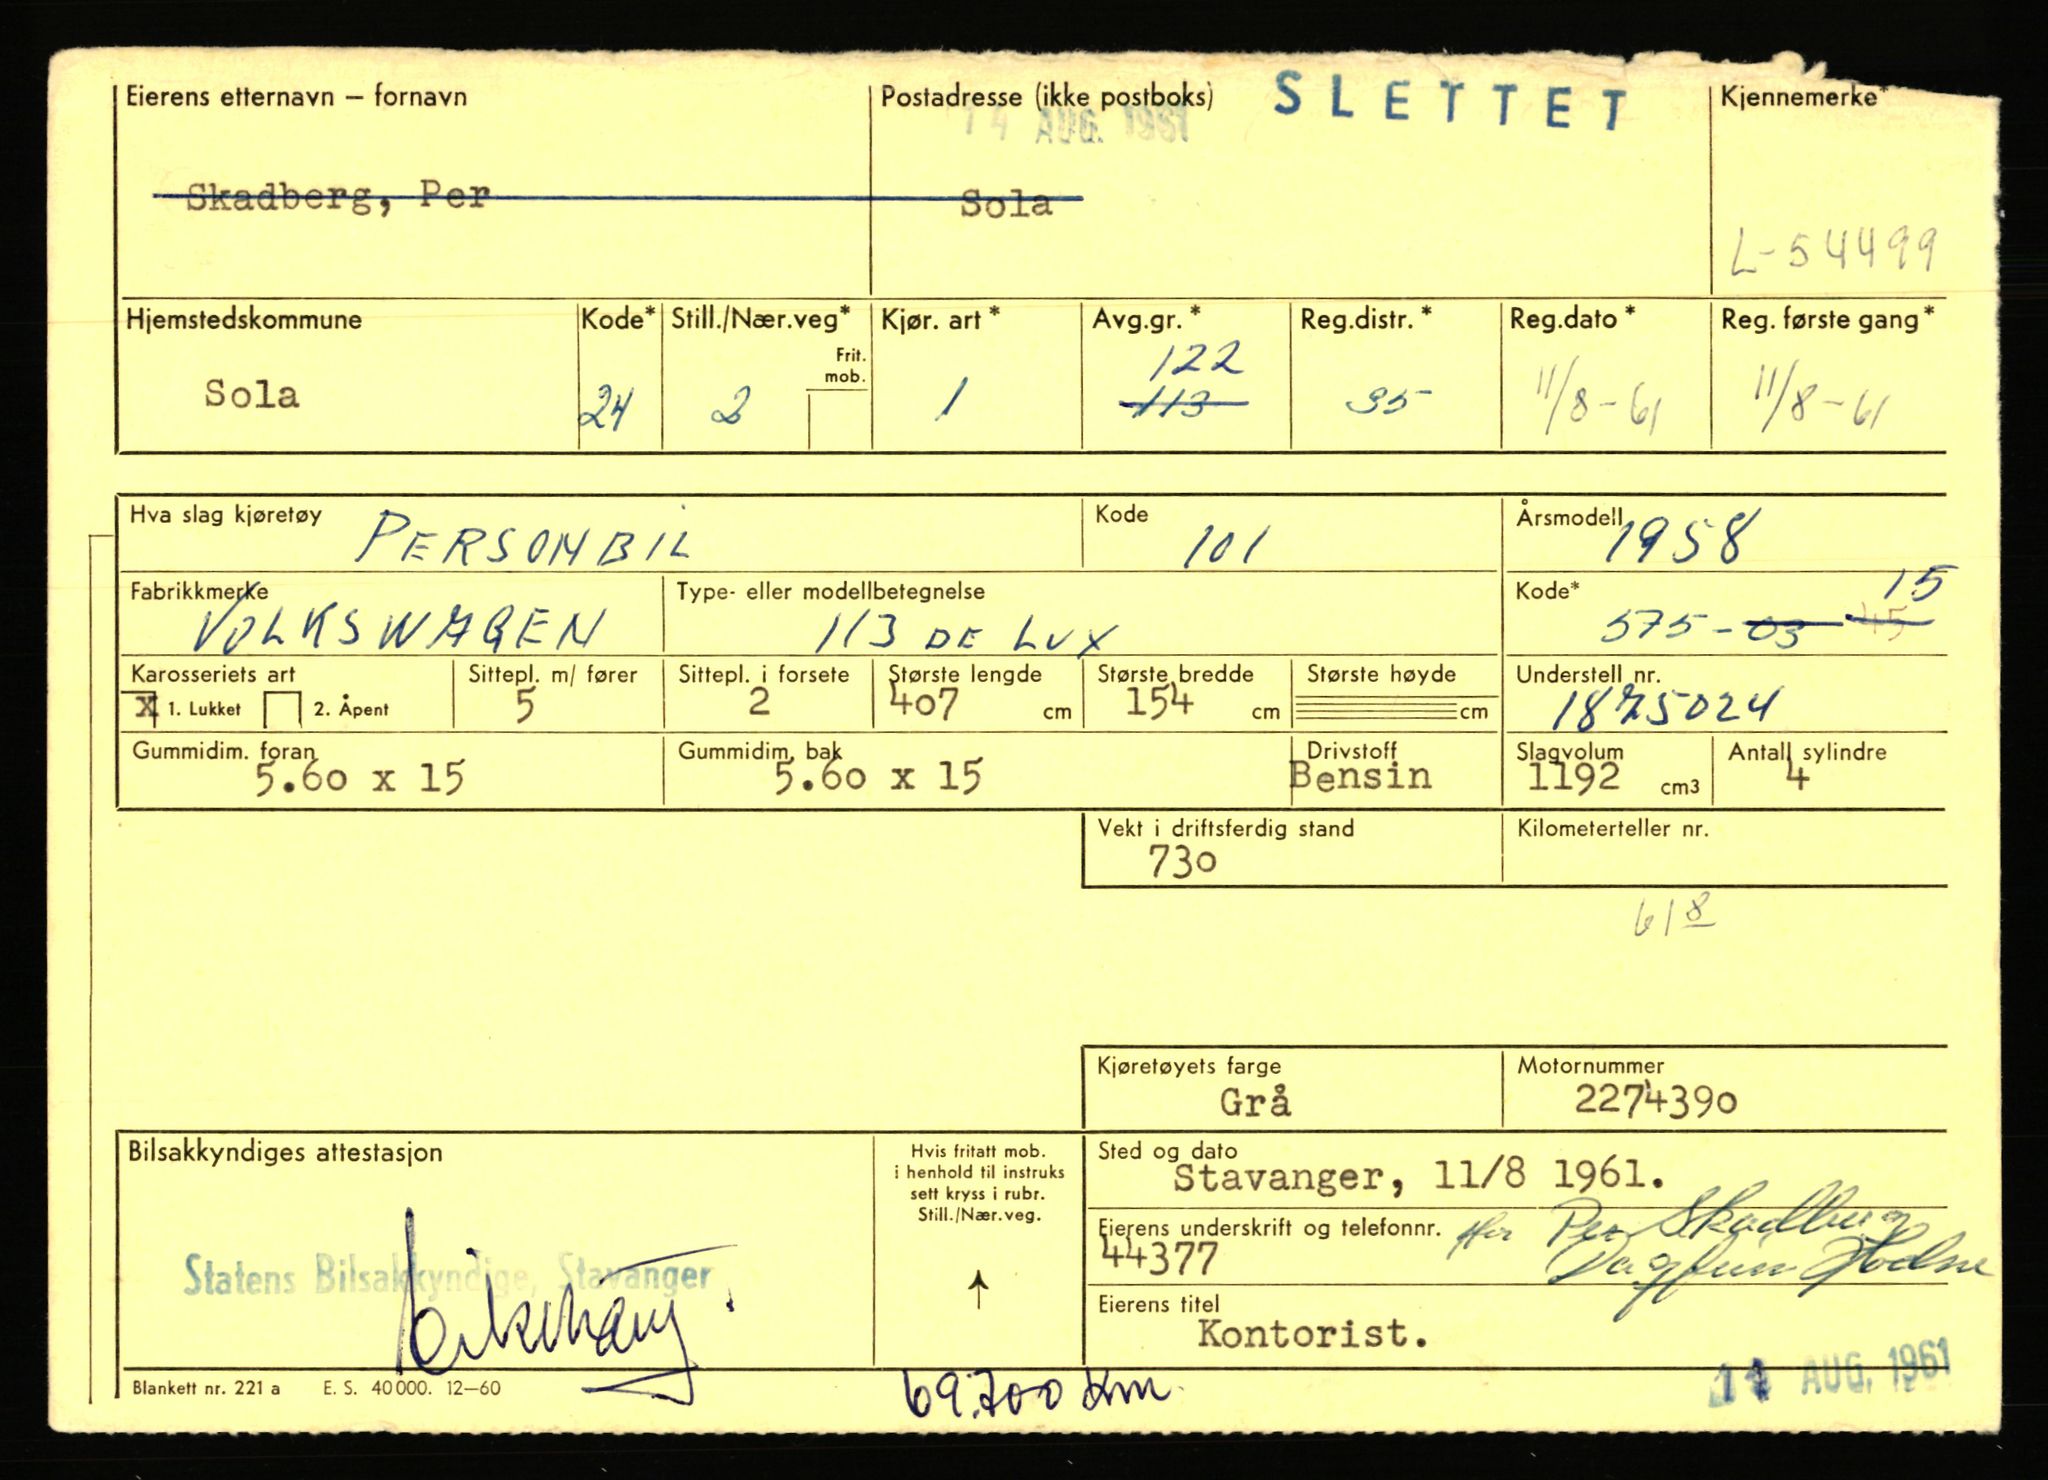 Eierens etternavn – fornavn Postadresse (ikke postboks) SLETTET Kjennemerke*
14 AUG. 1961
Skadberg, Per Sola
L-54499
Hjemstedskommune Kode* Still./Nær.veg* Kjør. art * Avg.gr. * Reg.distr. * Reg.dato * Reg. første gang *
Frit. mob.
122
Sola 24 2 1 113 35 11/8-61 11/8-61
Hva slag kjøretøy PERSONBIL Kode 101 Årsmodell 1958
Fabrikkmerke Type- eller modellbetegnelse Kode* 15
VOLKSWAGEN 113 DE LUX 575-03 45
Karosseriets art Sittepl. m/ fører Sittepl. i forsete Største lengde Største bredde Største høyde Understell nr.
x 1. Lukket 2. Åpent 5 2 407 cm 154 cm cm 1875024
Gummidim. foran Gummidim. bak Drivstoff Slagvolum Antall sylindre
5.60 x 15 5.60 x 15 Bensin 1192 cm3 4
Vekt i driftsferdig stand Kilometerteller nr.
730
618
Kjøretøyets farge Motornummer
Grå 2274390
Bilsakkyndiges attestasjon
Hvis fritatt mob.
i henhold til instruks
sett kryss i rubr.
Still./Nær.veg.
↑
Statens Bilsakkyndige, Stavanger
Sted og dato
Stavanger, 11/8 1961.
Eierens underskrift og telefonnr. for Per Skadberg
44377 Dagfinn Hodne
Eierens titel
Kontorist.
11 AUG. 1961
Blankett nr. 221 a E. S. 40 000. 12–60 69.700 km.